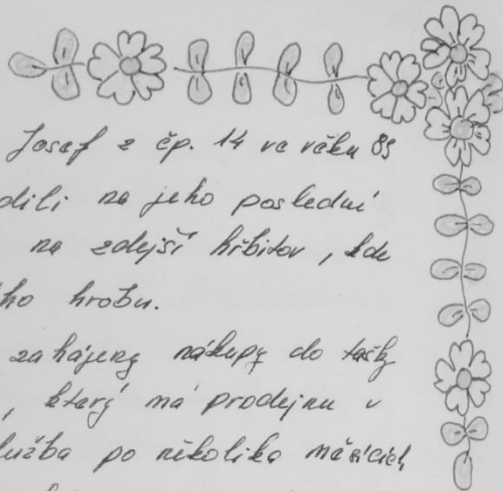 Josef z čp. 14 ve věku 89
dili na jeho poslední
na zdejší hřbitov, kde
ho hrobu.
zahájeny nákupy do tašky
, který má prodejnu v
lužba po několika měsících